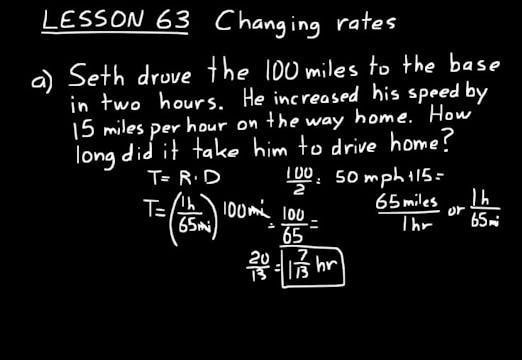 LESSON 63 Changing rates
a) Seth drove the 100 miles to the base
in two hours. He increased his speed by
15 miles per hour on the way home. How
long did it take him to drive home?
T= R·D 100/2 = 50 mph +15 =
65 miles/1 hr or 1h/65mi
T= (1h/65mi) 100mi = 100/65 =
20/13 = 1 7/13 hr